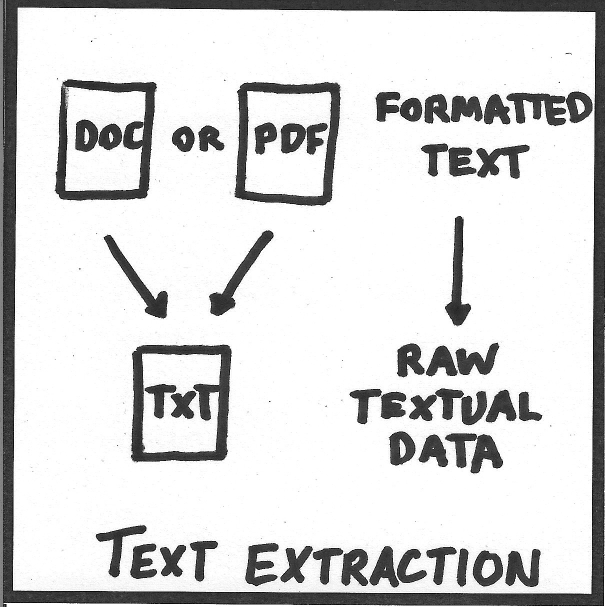 DOC OR PDF
TXT
FORMATTED
TEXT
RAW
TEXTUAL
DATA
TEXT EXTRACTION